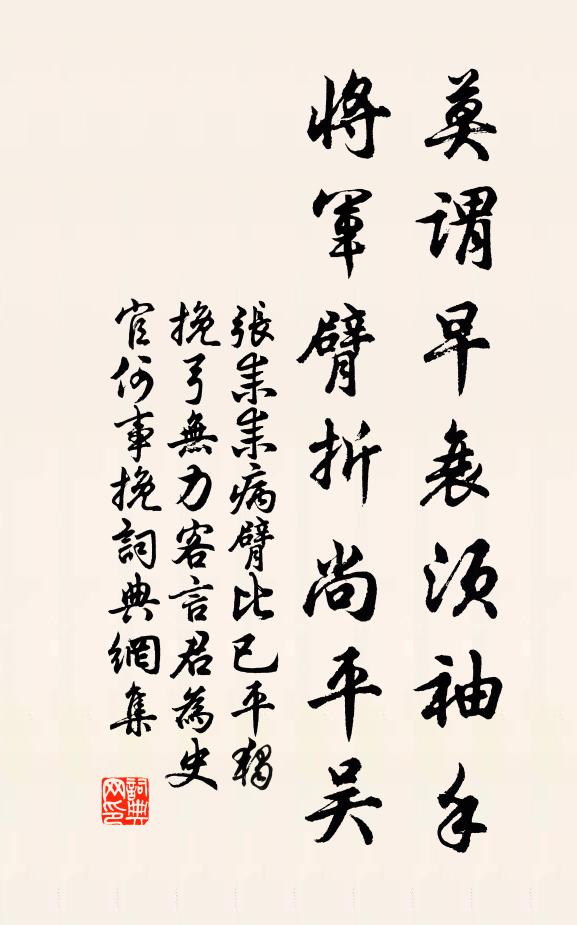 莫謂早衰須袖手
將軍臂折尚平吳
張耒耒病臂比已平獨
挽弓無力客言君為史
官何事挽詞典網集
詞典網印